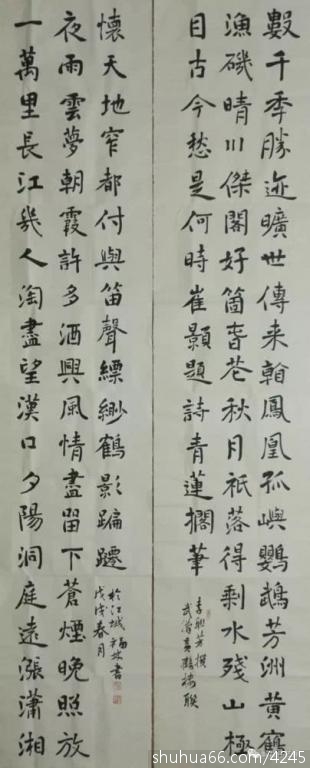 數千季勝迹曠世傳来翰鳳凰孤嶼鸚鵡芳洲黄鶴
漁磯晴川傑閣好箇旾花秋月祇落得剩水殘山極
目古今愁是何時崔顥題詩青蓮擱筆
李聯芳撰
武漢黄鶴樓聯
一萬里長江幾人淘盡望漢口夕陽洞庭遠漲瀟湘
夜雨雲夢朝霞許多酒興風情盡留下蒼煙晚照放
懷天地窄都付與笛聲縹緲鶴影蹁躚
戊戌春月
於江城福林書
shuhua66.com/4245